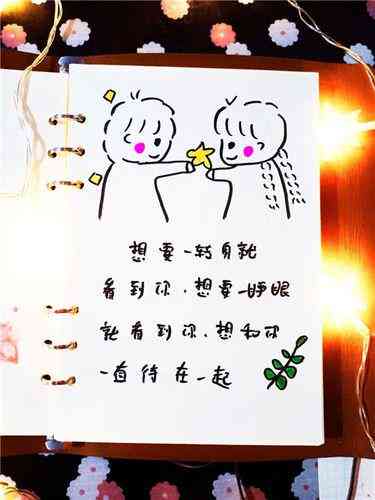 想要一转身就
看到你.想要一睁眼
就看到你.想和你
一直待在一起